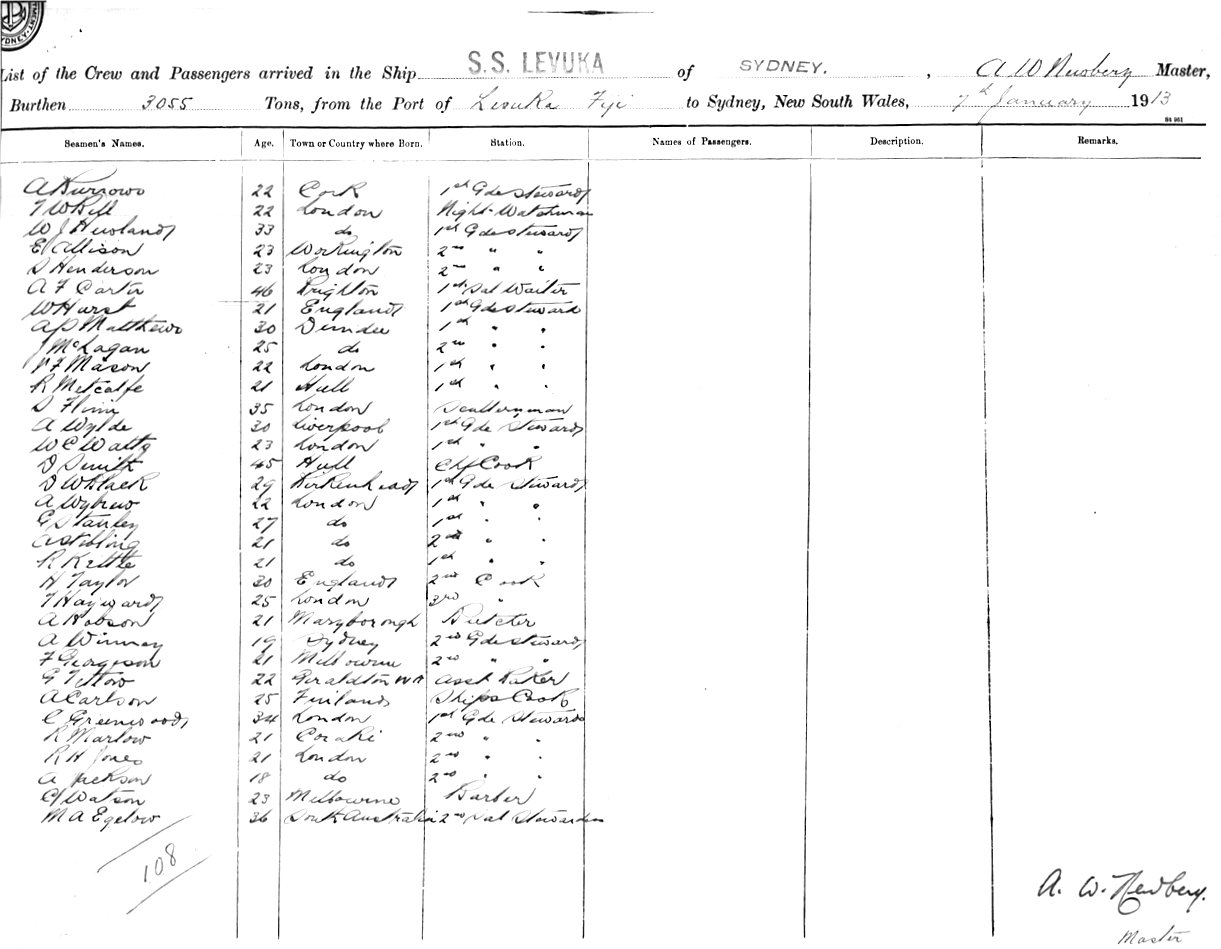 SYDNEY
List of the Crew and Passengers arrived in the Ship S.S. LEVUKA of SYDNEY. , A W Newbery Master,
Burthen 3055 Tons, from the Port of Levuka Fiji to Sydney, New South Wales, 7th January 1913
St 961
Seamen's Names. Age. Town or Country where Born. Station. Names of Passengers. Description. Remarks.
A Burrows 22 Cork 1st Gde Steward
T W Bill 22 London Night-Watchman
W J Howland 33 do 1st Gde Steward
E Allison 23 Workington 2nd " "
D Henderson 23 London 2nd " "
A F Carter 46 Brighton 1st Sal Waiter
W Hurst 21 England 1st Gde Steward
A D Matthews 30 Dundee 1st " "
J McLagan 25 do 2nd " "
F Mason 22 London 1st " "
R Metcalfe 21 Hull 1st " "
D 35 London Sculleryman
A Wylde 30 Liverpool 1st Gde Steward
W C Watts 23 London 1st " "
D Smith 45 Hull Chf Cook
D W Black 29 Birkenhead 1st Gde Steward
A Wybrew 22 London 1st " "
G Stanley 27 do 1st " "
A Stebbing 21 do 2nd " "
R Kettle 21 do 1st " "
H Taylor 30 England 2nd Cook
T Hayward 25 London 3rd "
A Hobson 21 Maryborough Butcher
A Winney 19 Sydney 2nd Gde Steward
F Georgeson 21 Melbourne 2nd " "
G Tettow 22 Geraldton WA Asst Baker
A Carlson 25 Finland Ships Cook
C Greenwood 34 London 1st Gde Steward
R Marlow 21 Coraki 2nd " "
R H Jones 21 London 2nd " "
A Jackson 18 do 2nd " "
C J Watson 23 Melbourne Barber
M A Egelow 36 South Australia 2nd Sal Stewardess
108
A. W. Newbery.
Master